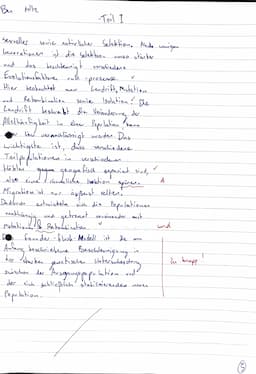 Teil I
sexuelles sowie natürlicher Selektion. Nach wenigen
Generationen ist die Selektion immer stärker
und das beschleunigt verschiedene
Evolutionsfaktoren
Hier beobachtet man Gendrift, Mutation
und Rekombination sowie Isolation. Die
Gendrift beschreibt die Veränderung der
Allelhäufigkeit in einer Population kann
vernachlässigt werden. Das
wichtigste ist, dass verschiedene
Teilpopulationen in verschiedenen
Höhlen geografisch separiert sind,
also eine räumliche Isolation
Migration ist nur äußerst selten.
Dadurch entwickeln sich die Populationen
unabhängig und getrennt voneinander mit
Mutation & Rekombination
und
Founder-flush Modell ist die am
Anfang beschriebene Beschleunigung in
der starken genetischen Unterscheidung
zwischen der Ausgangspopulation und
der sich schließlich stabilisierenden neuen
Population.
zu knapp!